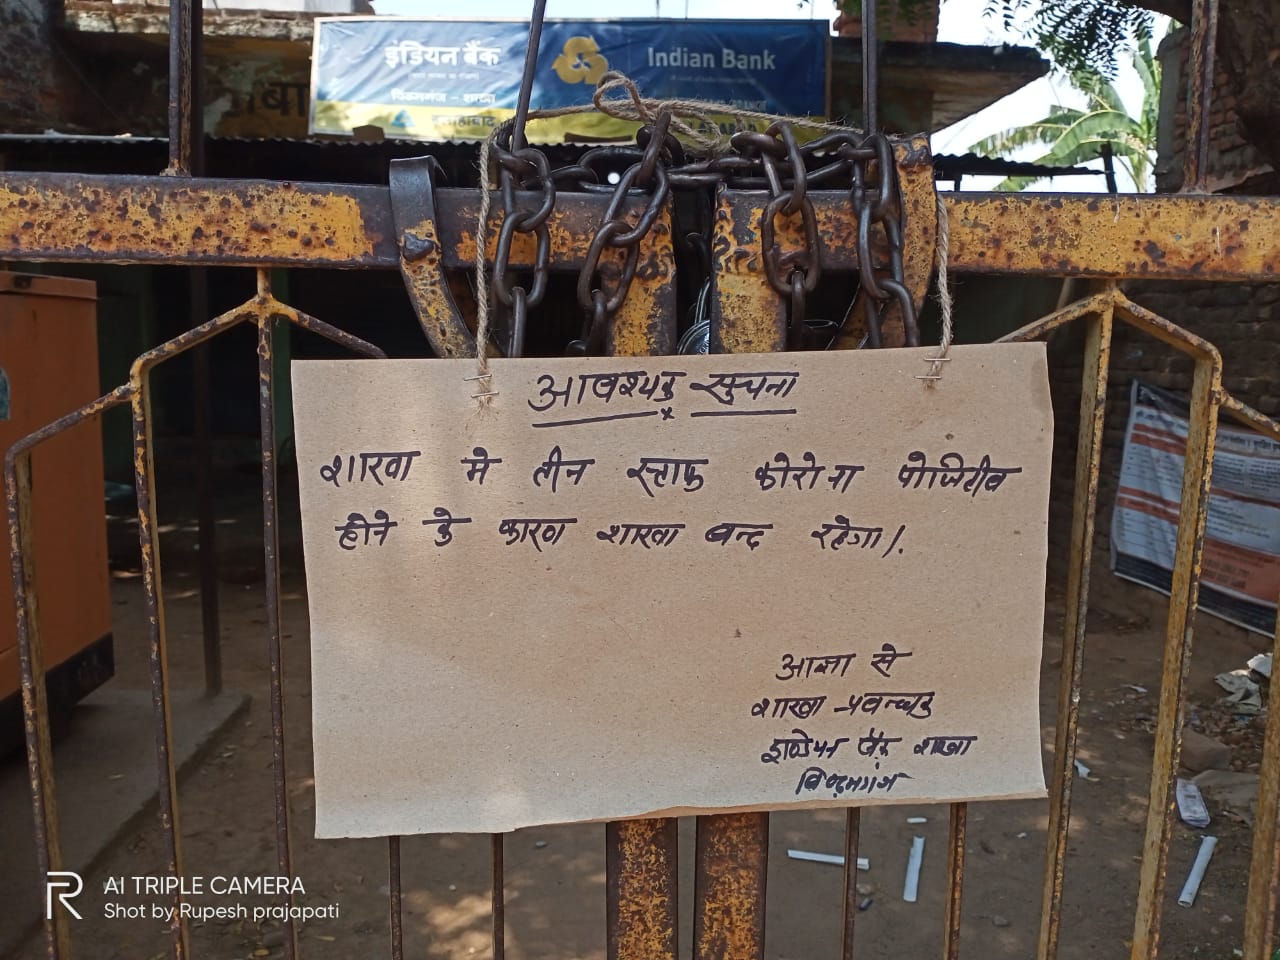 इंडियन बैंक
Indian Bank
शाखा
इलाहाबाद
आवश्यक सुचना
शाखा मे तीन स्टाफ कोरोना पोजिटीव
होने के कारण शाखा बन्द रहेगा।.
आज्ञा से
शाखा प्रबन्धक
इण्डियन बैंक शाखा
विण्ढमगंज
AI TRIPLE CAMERA
Shot by Rupesh prajapati